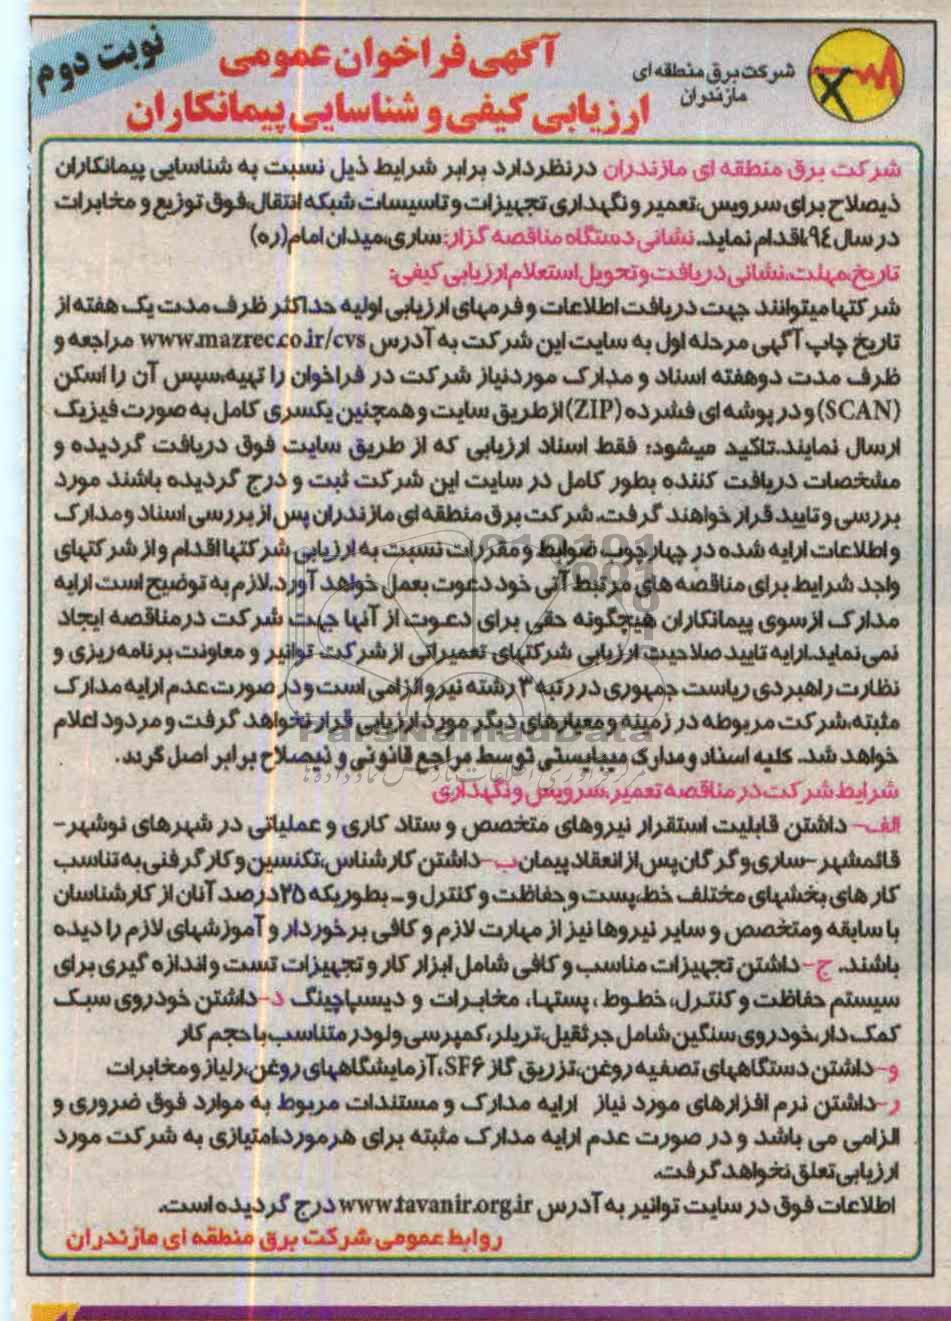 نوبت دوم
آگهی فراخوان عمومی
ارزیابی کیفی و شناسایی پیمانکاران
شرکت برق منطقه ای
مازندران
شرکت برق منطقه ای مازندران درنظردارد برابر شرایط ذیل نسبت به شناسایی پیمانکاران
ذیصلاح برای سرویس،تعمیر و نگهداری تجهیزات و تاسیسات شبکه انتقال،فوق توزیع و مخابرات
در سال ۹٤،اقدام نماید. نشانی دستگاه مناقصه گزار: ساری،میدان امام(ره)
تاریخ،مهلت،نشانی دریافت و تحویل استعلام ارزیابی کیفی:
شرکتها میتوانند جهت دریافت اطلاعات و فرمهای ارزیابی اولیه حداکثر ظرف مدت یک هفته از
تاریخ چاپ آگهی مرحله اول به سایت این شرکت به آدرس www.mazrec.co.ir/cvs مراجعه و
ظرف مدت دوهفته اسناد و مدارک موردنیاز شرکت در فراخوان را تهیه،سپس آن را اسکن
(SCAN) و در پوشه ای فشرده (ZIP) ازطریق سایت و همچنین یکسری کامل به صورت فیزیک
ارسال نمایند.تاکید میشود: فقط اسناد ارزیابی که از طریق سایت فوق دریافت گردیده و
مشخصات دریافت کننده بطور کامل در سایت این شرکت ثبت و درج گردیده باشند مورد
بررسی و تایید قرار خواهند گرفت. شرکت برق منطقه ای مازندران پس از بررسی اسناد و مدارک
و اطلاعات ارایه شده در چهارچوب ضوابط و مقررات نسبت به ارزیابی شرکتها اقدام و از شرکتهای
واجد شرایط برای مناقصه های مرتبط آتی خود دعوت بعمل خواهد آورد.لازم به توضیح است ارایه
مدارک ازسوی پیمانکاران هیچگونه حقی برای دعوت از آنها جهت شرکت درمناقصه ایجاد
نمی نماید.ارایه تایید صلاحیت ارزیابی شرکتهای تعمیراتی از شرکت توانیر و معاونت برنامه ریزی و
نظارت راهبردی ریاست جمهوری در رتبه ۳ رشته نیرو الزامی است و در صورت عدم ارایه مدارک
مثبته،شرکت مربوطه در زمینه و معیارهای دیگر مورد ارزیابی قرار نخواهد گرفت و مردود اعلام
خواهد شد. کلیه اسناد و مدارک میبایستی توسط مراجع قانونی و ذیصلاح برابر اصل گردد.
شرایط شرکت در مناقصه تعمیر،سرویس و نگهداری
الف- داشتن قابلیت استقرار نیروهای متخصص و ستاد کاری و عملیاتی در شهرهای نوشهر-
قائمشهر-ساری و گرگان پس از انعقاد پیمان ب-داشتن کارشناس،تکنسین و کارگر فنی به تناسب
کار های بخشهای مختلف خط،پست و حفاظت و کنترل و ـ بطوریکه ۲۵درصد آنان از کارشناسان
با سابقه ومتخصص و سایر نیروها نیز از مهارت لازم و کافی برخوردار و آموزشهای لازم را دیده
باشند. ج-داشتن تجهیزات مناسب و کافی شامل ابزار کار و تجهیزات تست و اندازه گیری برای
سیستم حفاظت و کنترل، خطوط ، پستها، مخابرات و دیسپاچینگ د-داشتن خودروی سبک
کمک دار،خودروی سنگین شامل جرثقیل،تریلر،کمپرسی ولودر متناسب با حجم کار
و-داشتن دستگاههای تصفیه روغن،تزریق گاز SF۶،آزمایشگاههای روغن،رلیاژ و مخابرات
ر-داشتن نرم افزارهای مورد نیاز ارایه مدارک و مستندات مربوط به موارد فوق ضروری و
الزامی می باشد و در صورت عدم ارایه مدارک مثبته برای هرمورد،امتیازی به شرکت مورد
ارزیابی تعلق نخواهد گرفت.
اطلاعات فوق در سایت توانیر به آدرس www.tavanir.org.ir درج گردیده است.
روابط عمومی شرکت برق منطقه ای مازندران
ParsNamadData